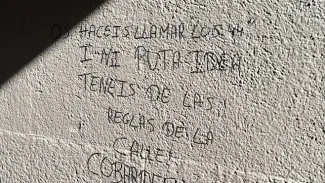 OS HACEIS LLAMAR LOS 44
I NI PUTA IDEA
TENEIS DE LAS
REGLAS DE LA
CALLE!
COBARDES